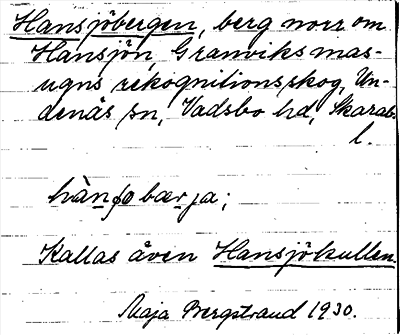 Hansjöbergen, berg norr om
Hansjön, Granviks mas-
ugns rekognitionsskog, Un-
denäs sn, Vadsbo hd, Skarab.
l.
Kallas även Hansjökullen.
Maja Bergstrand 1930.